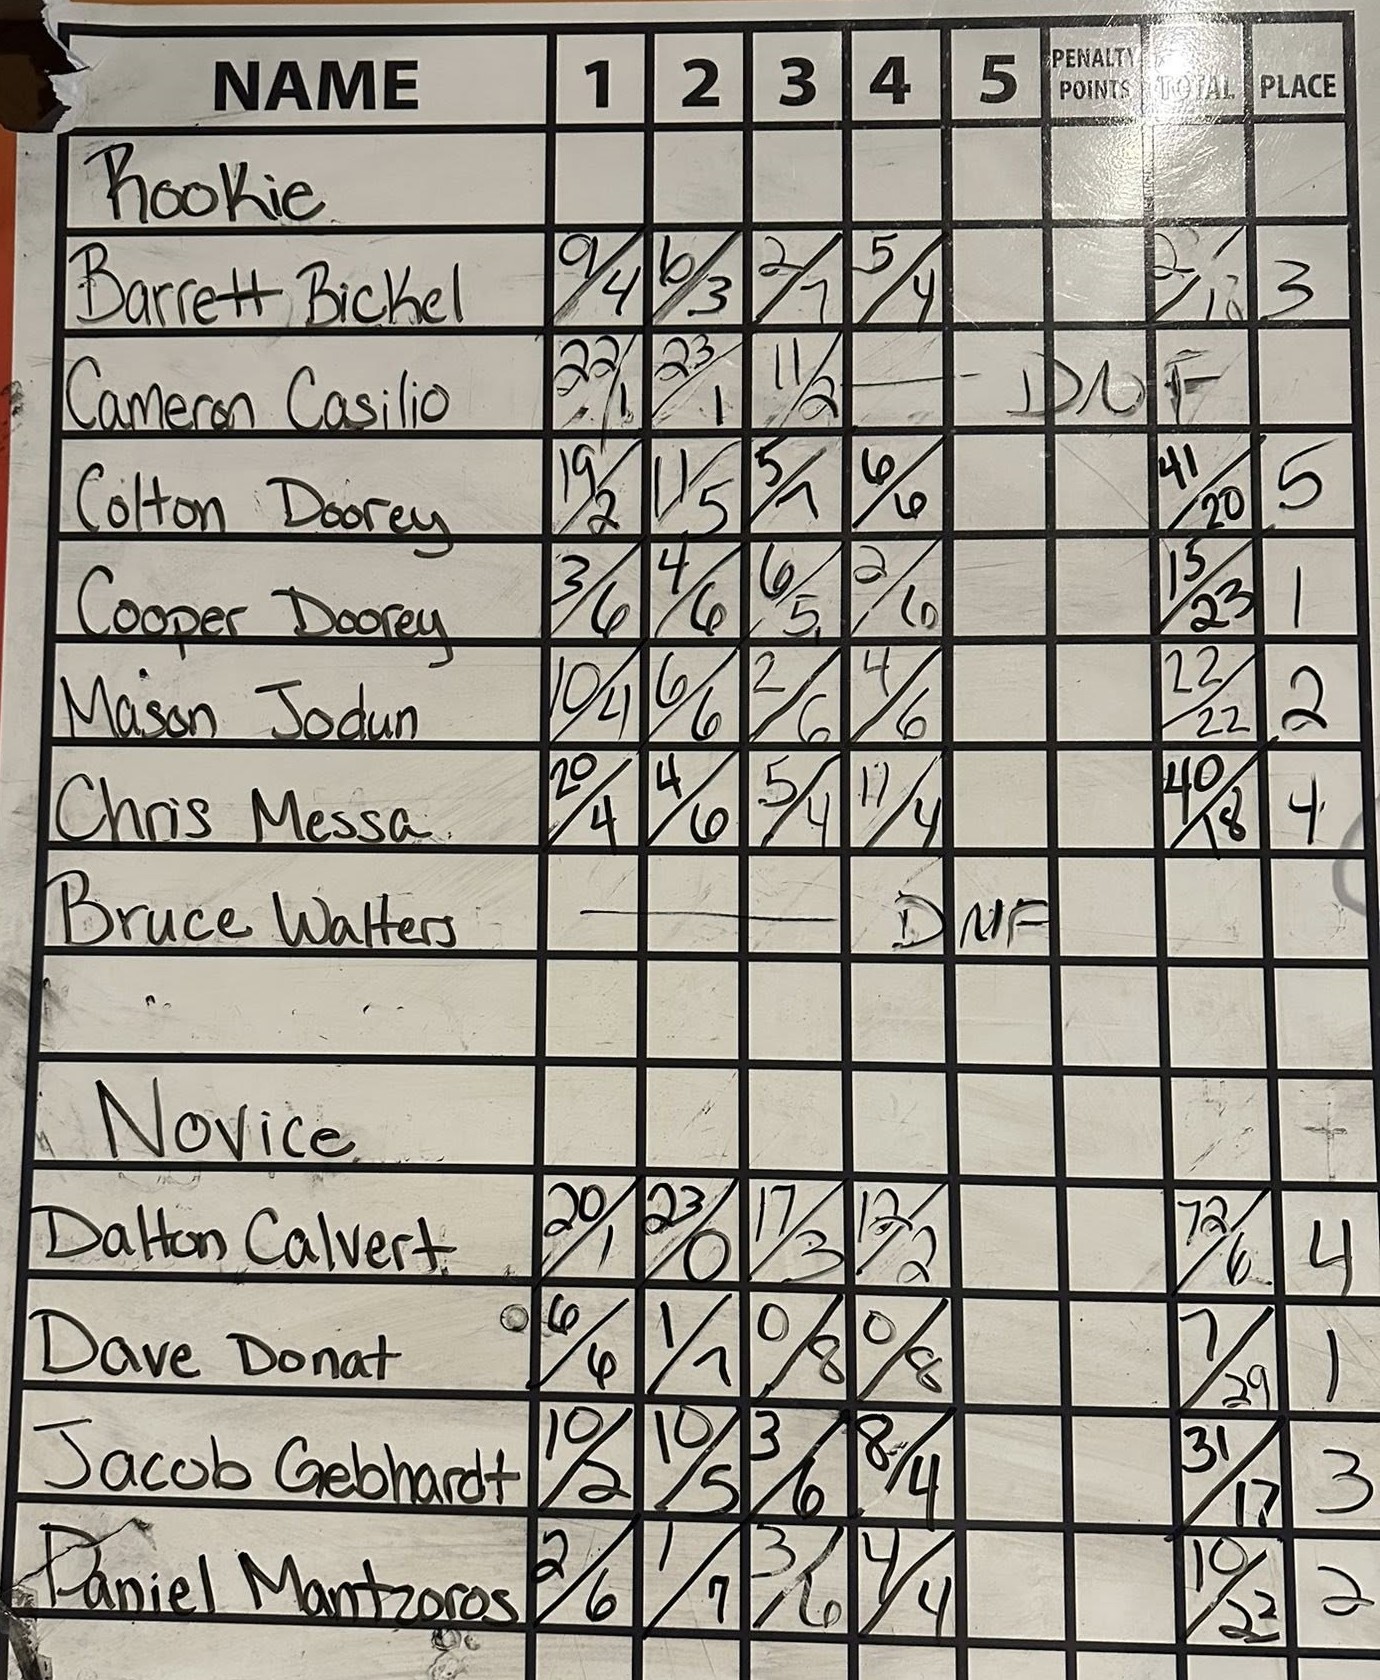 NAME 1 2 3 4 5 PENALTY POINTS TOTAL PLACE
Rookie
Barrett Bickel 9/4 6/3 2/7 5/4 3
Cameron Casilio 22/1 23/1 11/2 — DNF
Colton Doorey 19/2 11/5 5/7 6/6 41/20 5
Cooper Doorey 3/6 4/6 6/5 2/6 15/23 1
Mason Jodun 10/4 6/6 2/6 4/6 22/22 2
Chris Messa 20/4 4/6 5/4 11/4 40/18 4
Bruce Walters — DNF
Novice
Dalton Calvert 20/1 23/0 17/3 12/2 72/6 4
Dave Donat 6/6 1/7 0/8 0/8 7/29 1
Jacob Gebhardt 10/2 10/5 3/6 8/4 31/17 3
Daniel Mantzoros 2/6 1/7 3/6 4/4 10/22 2